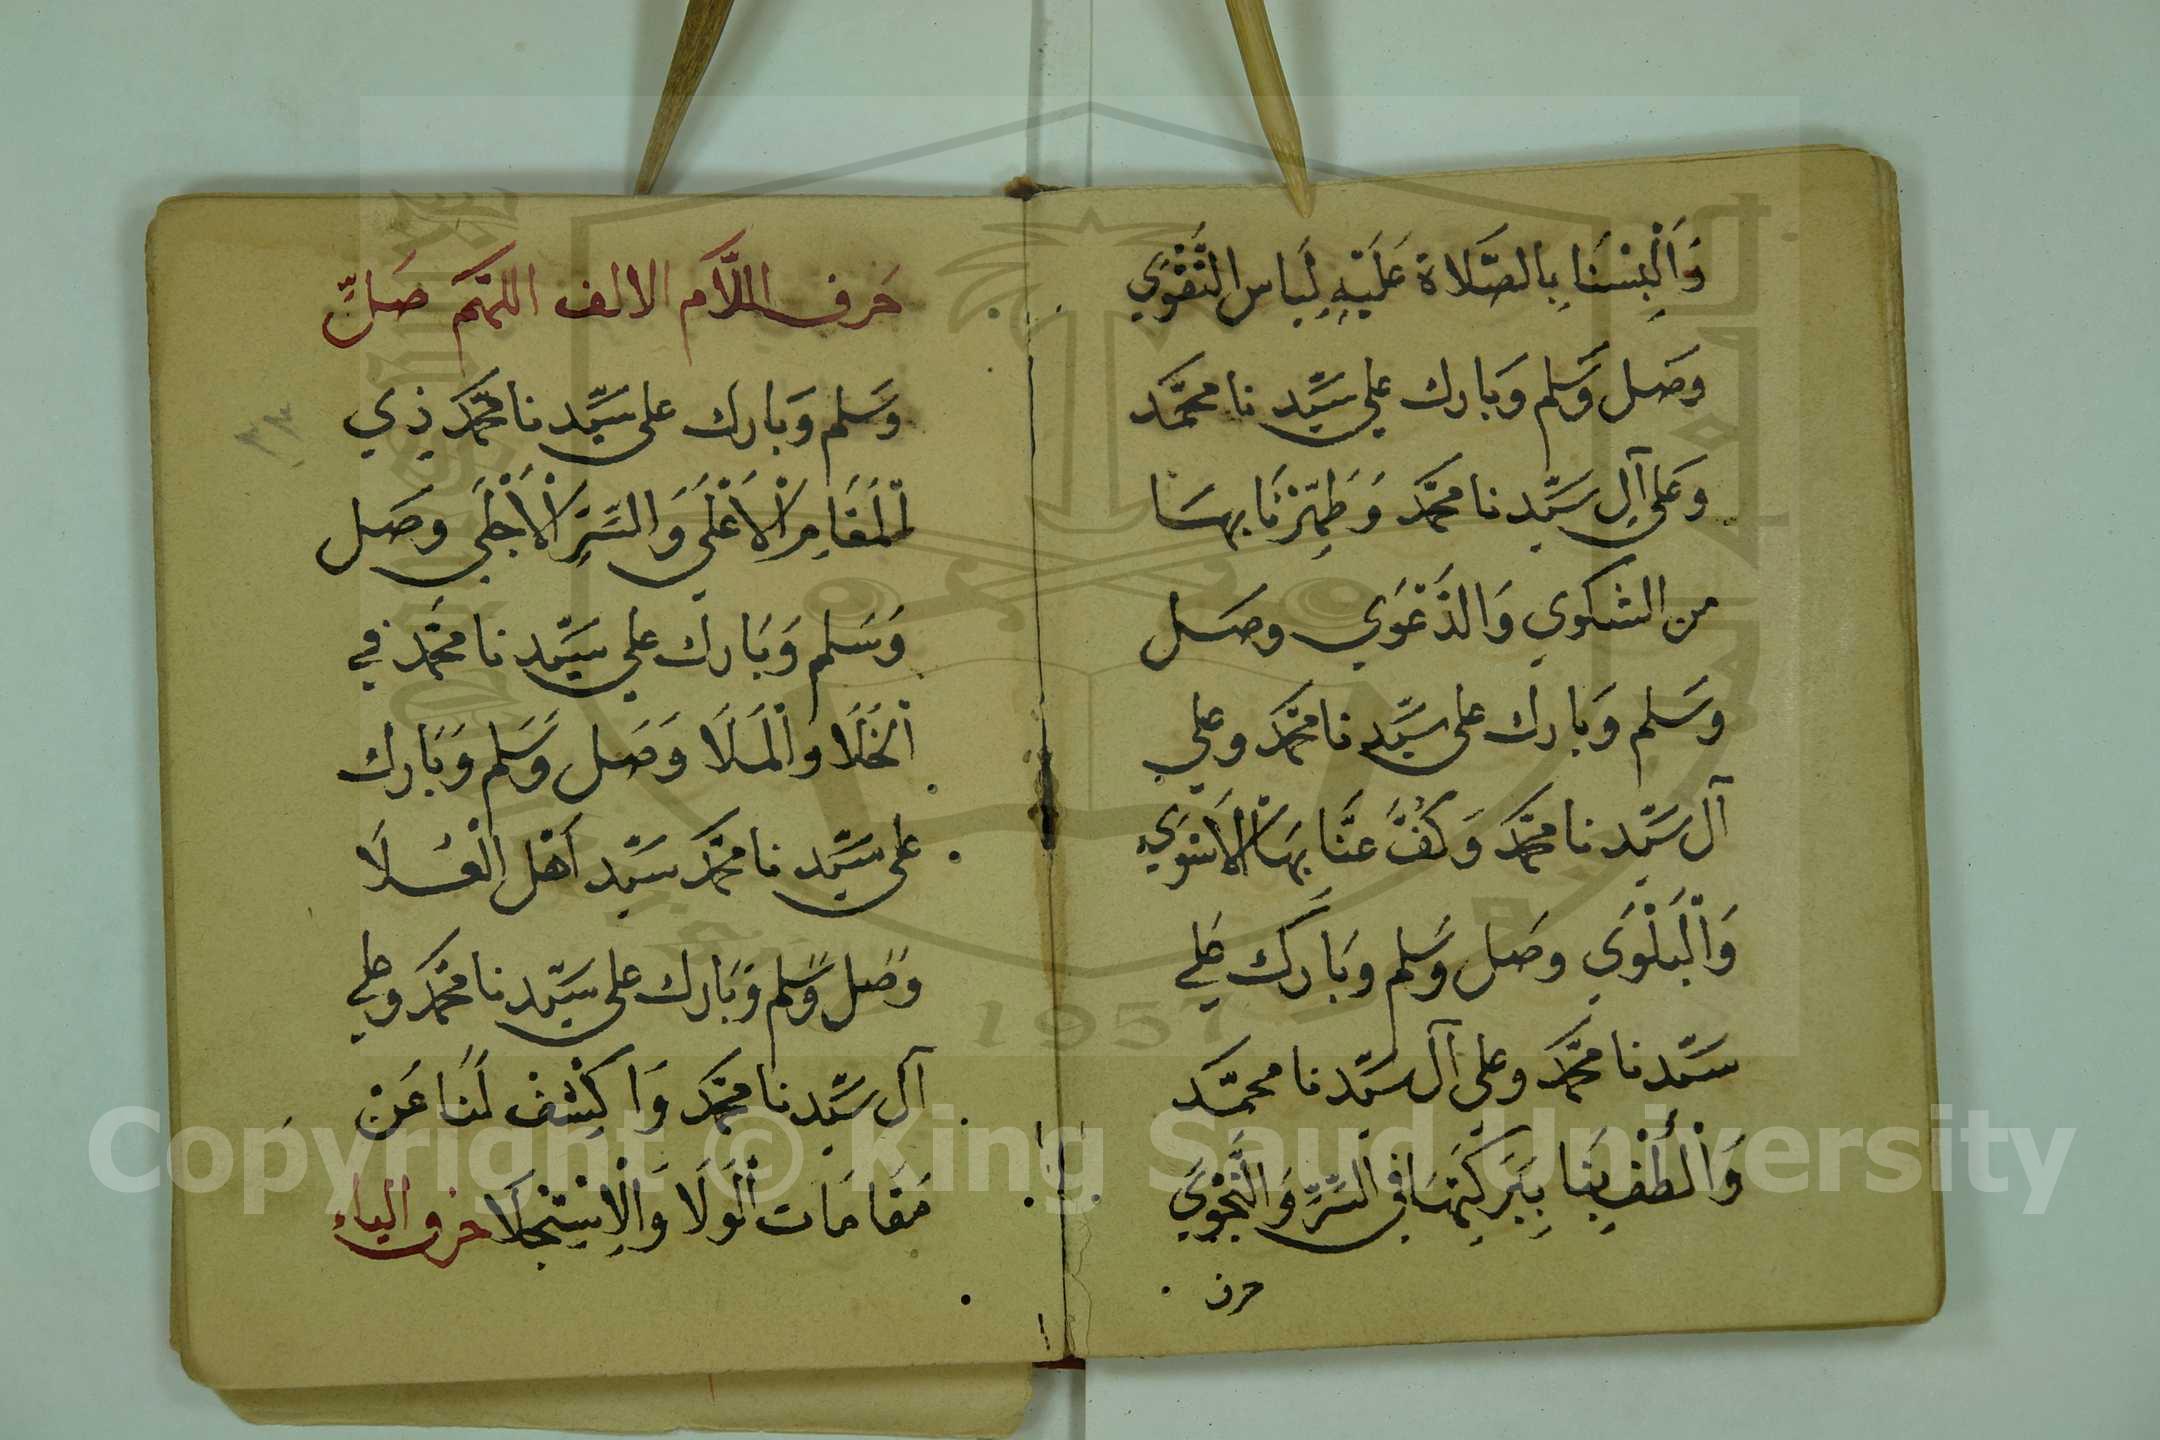 وَاَلْبِسْنَا بِالصَّلَاة عَلَيْهِ لِبَاس التَّقْوَي
وصَل وَسَلم وَبارك علي سَيِّدنا محمَّد
وَعلى آلِ سَيِّدنا محمَّد وَطَهِّرْنَا بهَا
من الشكوي وَالدَّعْوَي وصَل
وسَلم وَبارك على سَيِّدنا محمَّد وعلي
آل سَيِّدنا محمَّد وَكُفَّ عَنَّا بهَا الْاَسْوَي
وَالْبَلْوَي وصَل وسَلم وبَارَك علي
سَيِّدنا محمَّد وعلى آل سيِّدنا محمَّد
وَالْطُفْ بِنَا بِبَرَكِتهَا في السِّرِّ وَالنَّجْوَي
حرف
حَرف اللَّام الالف اللهمَّ صَلِّ
وسَلم وَبارك على سَيِّدنا محمَّد ذِي
الْمَقَامِ الْاَعْلَي وَالسِّرِّ الْاَجْلَي وصَل
وَسَلم وَبَارك علي سَيِّدنا محمَّد في
الْخَلَا والْمَلَا وَصَل وَسَلم وَبَارك
على سَيِّدنا محمَّد سَيِّد اَهْل الْعُلَا
وصَل وسَلم وَبَارك على سَيِّدنا محمَّد وعلي
آل سَيِّدنا محمَّد وَاكْشِفْ لَنَا عَنْ
مَقَامَات الْوَلَا وَالْاِسْتِجْلَا حرف الياء
٢٣
1957
Copyright © King Saud University